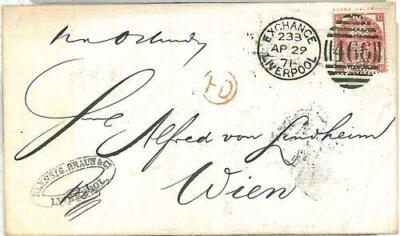 via Ostende
EXCHANGE
23B
AP 29
71
LIVERPOOL
466
PD
Alfred von Lindheim
Wien
BRAUN & Co
LIVERPOOL